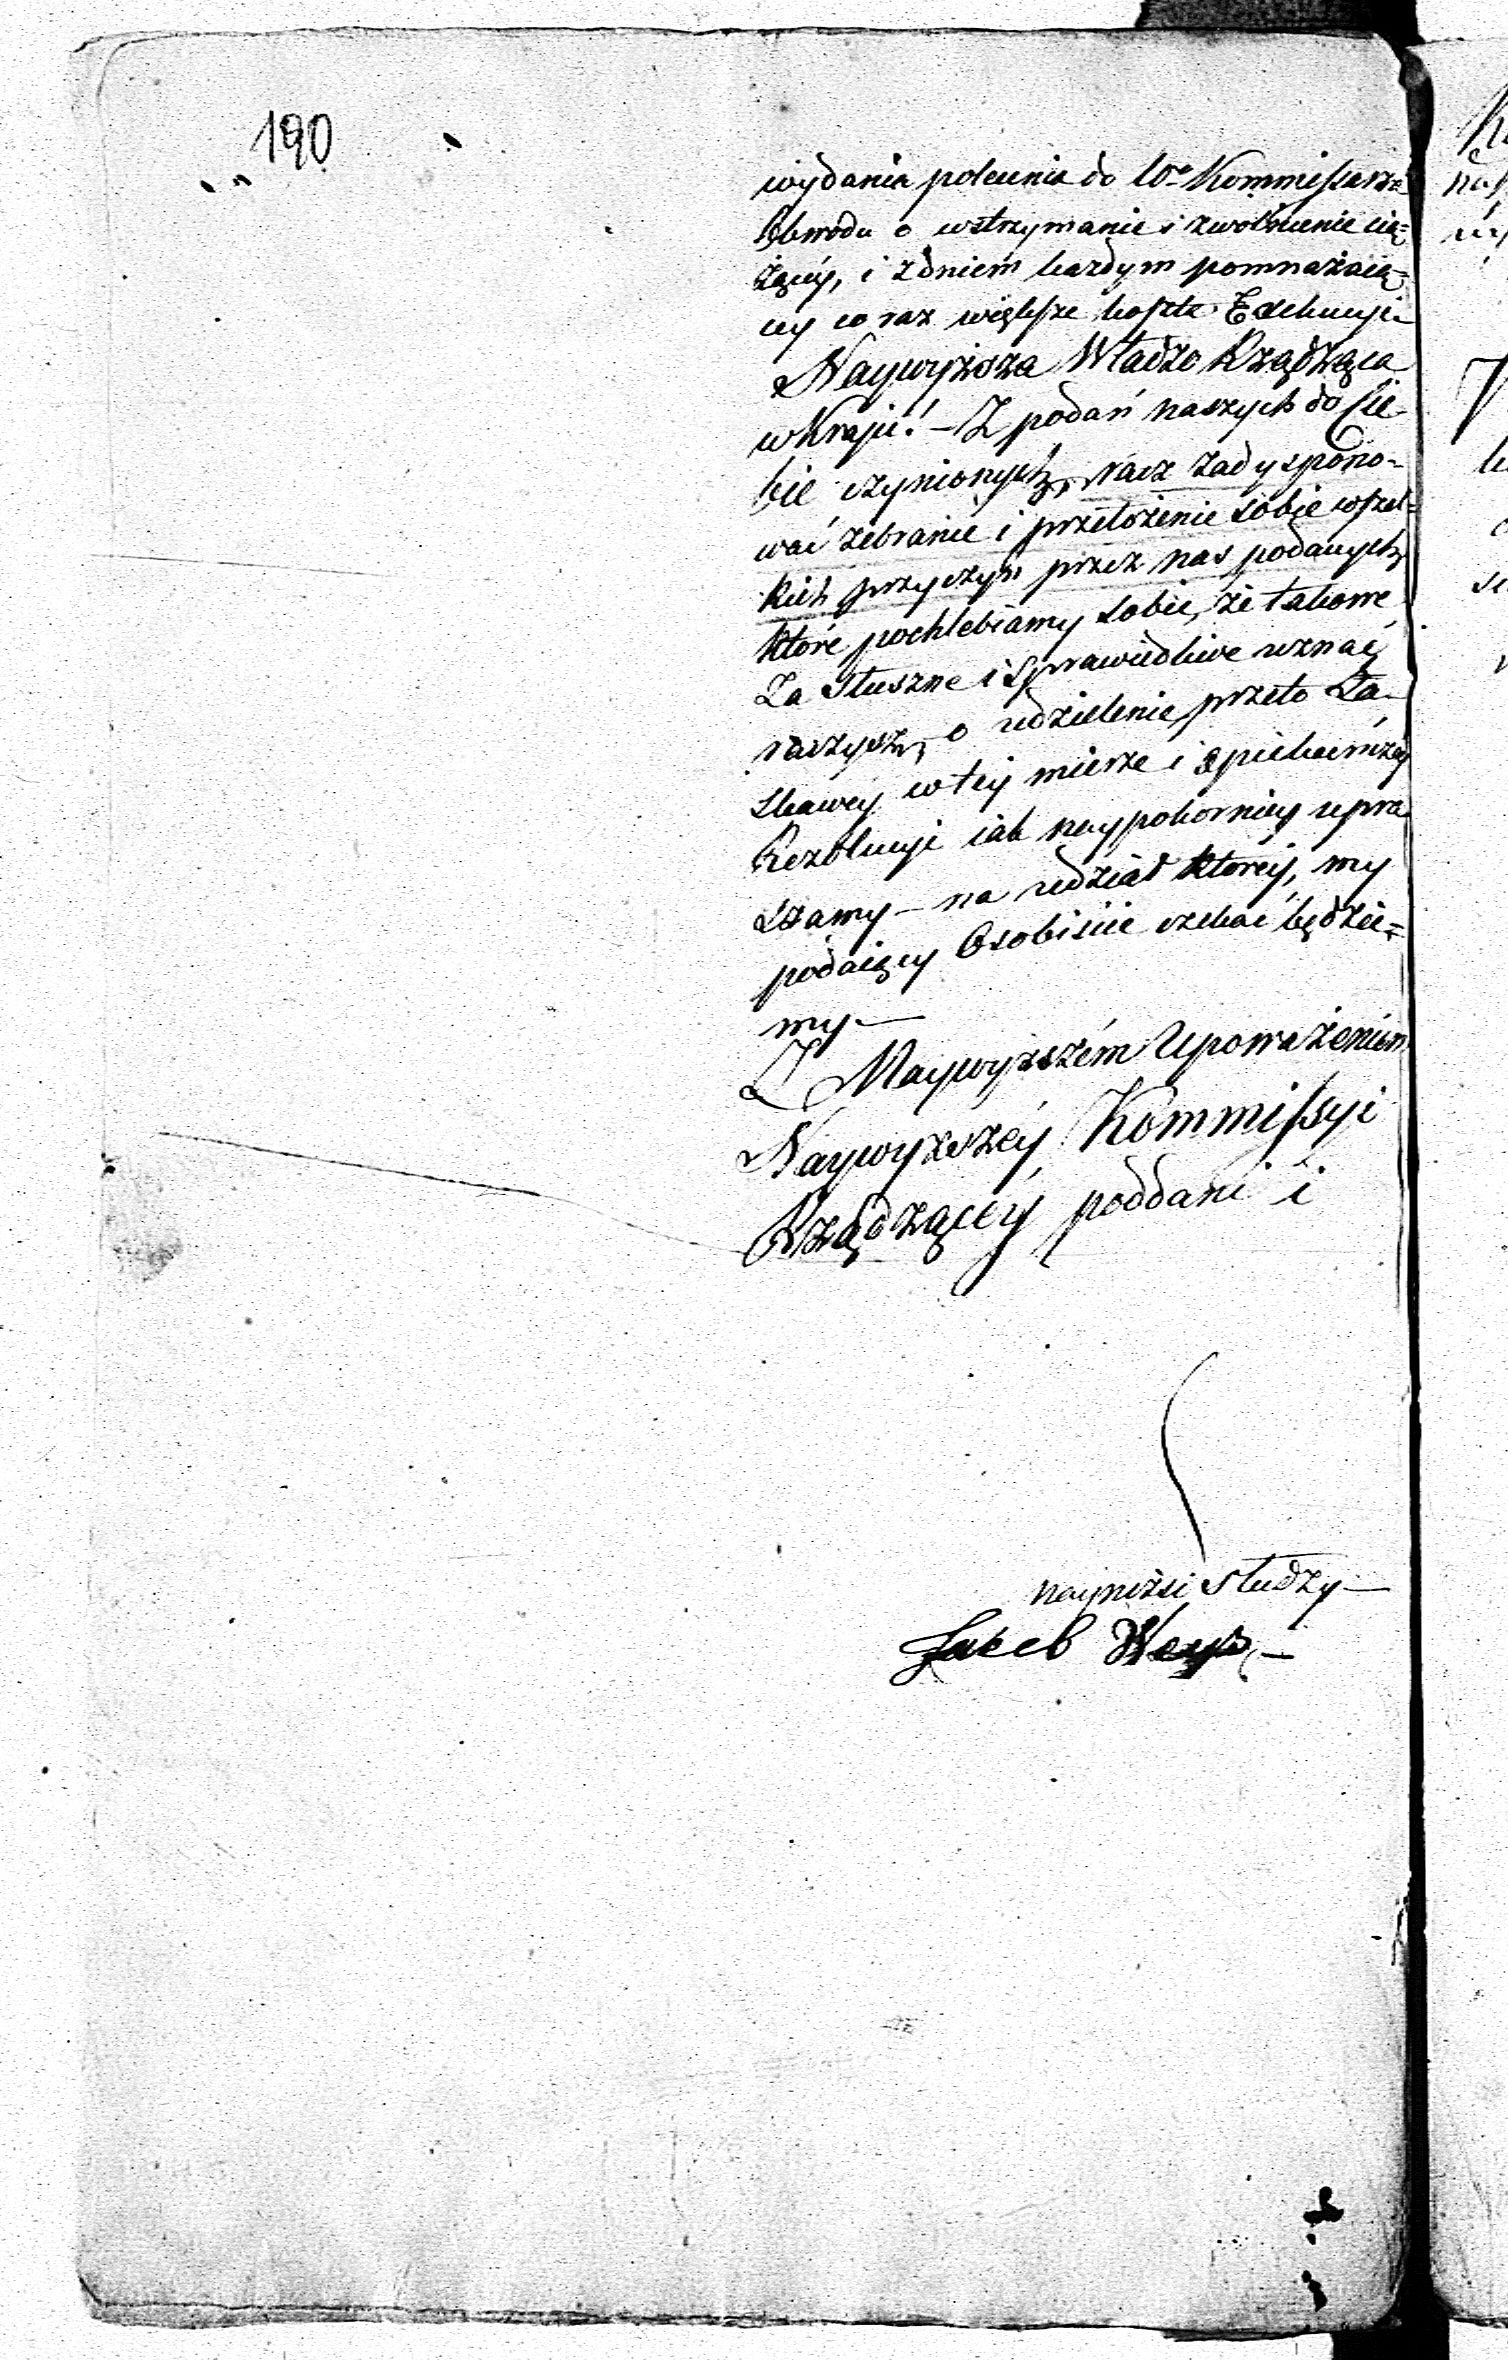 190
wydania polecenia do We Kommissarza
Obwodu o wstrzymanie i zwolnienie cią=
żącéy, i z dniem kazdym pomnażaią=
cey co raz większe koszta Exekucyi
Naywyższa Władzo Rządząca
w Kraju! – Z podań naszych do Cie
bie czynionych, racz zadyspono-
wać zebranie i przełożenie sobie wszel=
kich przyczyn przez nas podanych
które pochlebiamy sobie, że takowe
Za Słuszne i Sprawiedliwe uznać
raczysz, o udzielenie przeto Ła-
skawey w tey mierze i
Rezolucyi iak naypokorniey upra
szamy – na udział któréy, my
podaiący Osobiście czekać będzie=
my –
Z Naywyższém Upoważeniem
Naywyższéy Kommissyi
Rządzącéy poddani i
nayniżsi słudzy –
Jakob Weys –